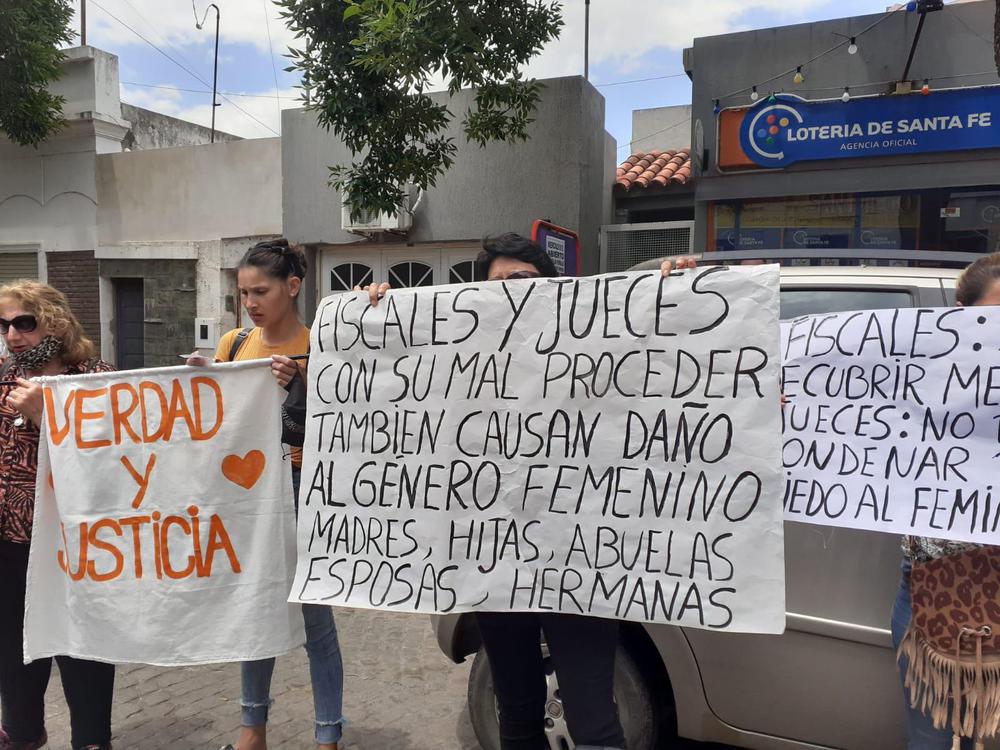 LOTERIA DE SANTA FE
AGENCIA OFICIAL
VERDAD
Y
JUSTICIA
FISCALES Y JUECES
CON SU MAL PROCEDER
TAMBIEN CAUSAN DAÑO
AL GÉNERO FEMENINO
MADRES, HIJAS, ABUELAS
ESPOSAS, HERMANAS
FISCALES:
ECUBRIR ME
JUECES: NO
ONDENAR
IEDO AL FEMI